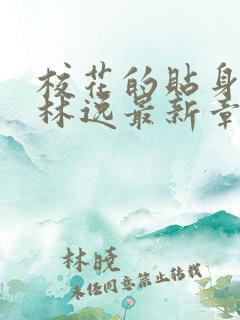 校花的贴身
林逸最新章
林晓
未经同意禁止转载